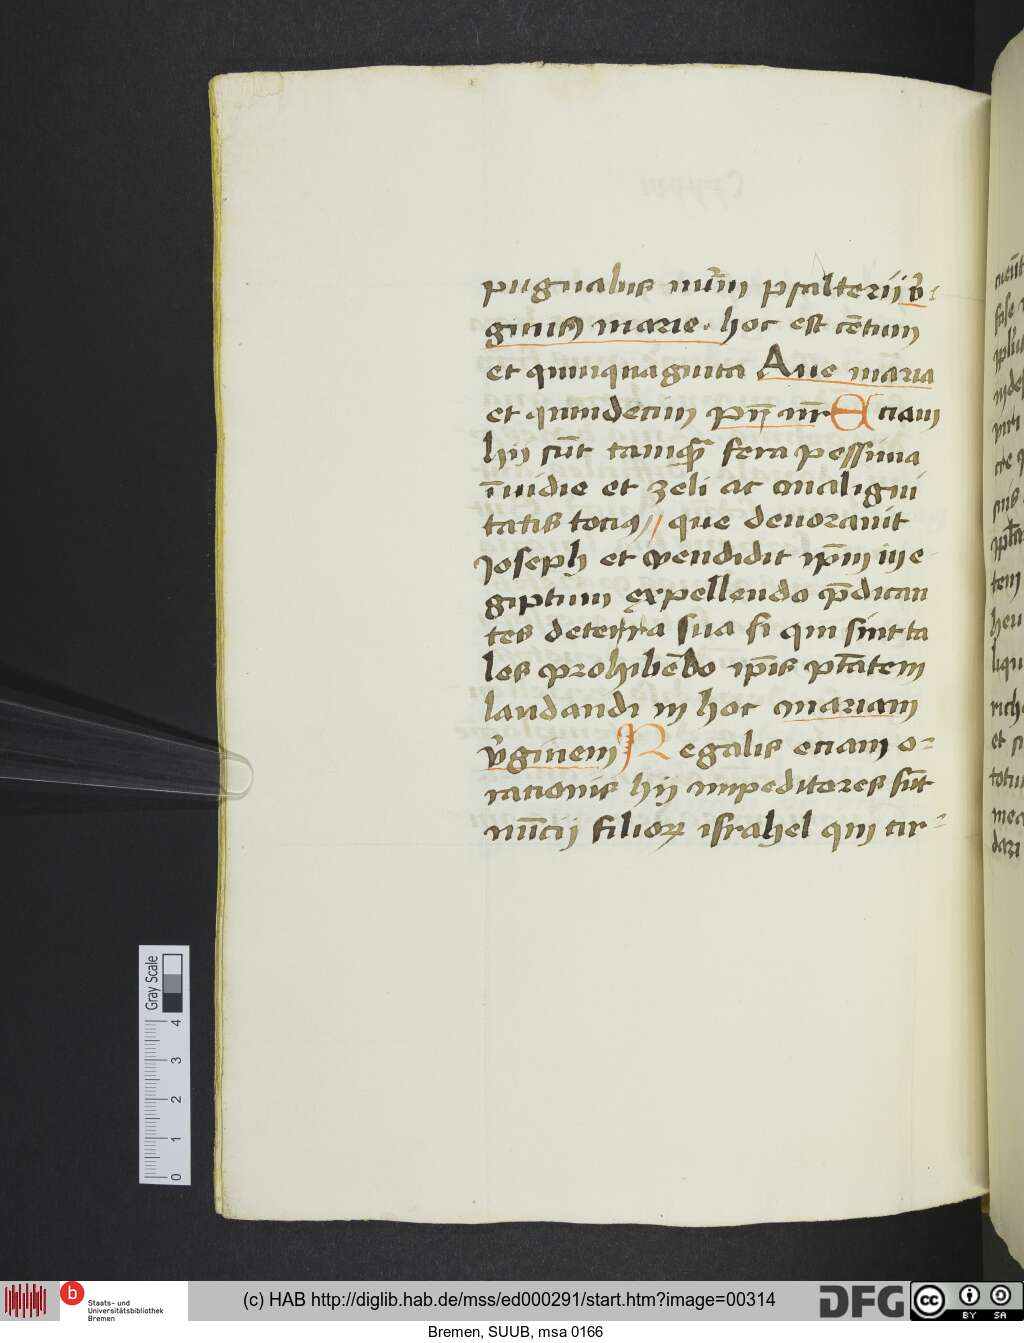 pugnabus nūm psalterii v̄:
ginis marie. hoc est cētum
et quinquaginta Aue maria
et quindecim pr̄ nr̄ Eciam
hii sūt tamqꝫ fera pessima
īuidie et zeli ac malig̣ni
tatis toci⁹// que deuorauit
Joseph et vendidit ip̄m in e-
giptum expellendo p̄dican
tes de terra sua si qui sint ta
les prohibēdo ip̄is ptātem
laudandi in hoc mariam
v̄ginem Regalis eciam o=
rationis hij impeditores sūt
nūcii filioꝝ israhel qui cir=
Gray Scale
0 1 2 3 4
b
Staats- und
Universitätsbibliothek
Bremen
(c) HAB http://diglib.hab.de/mss/ed000291/start.htm?image=00314
DFG
cc BY SA
Bremen, SUUB, msa 0166